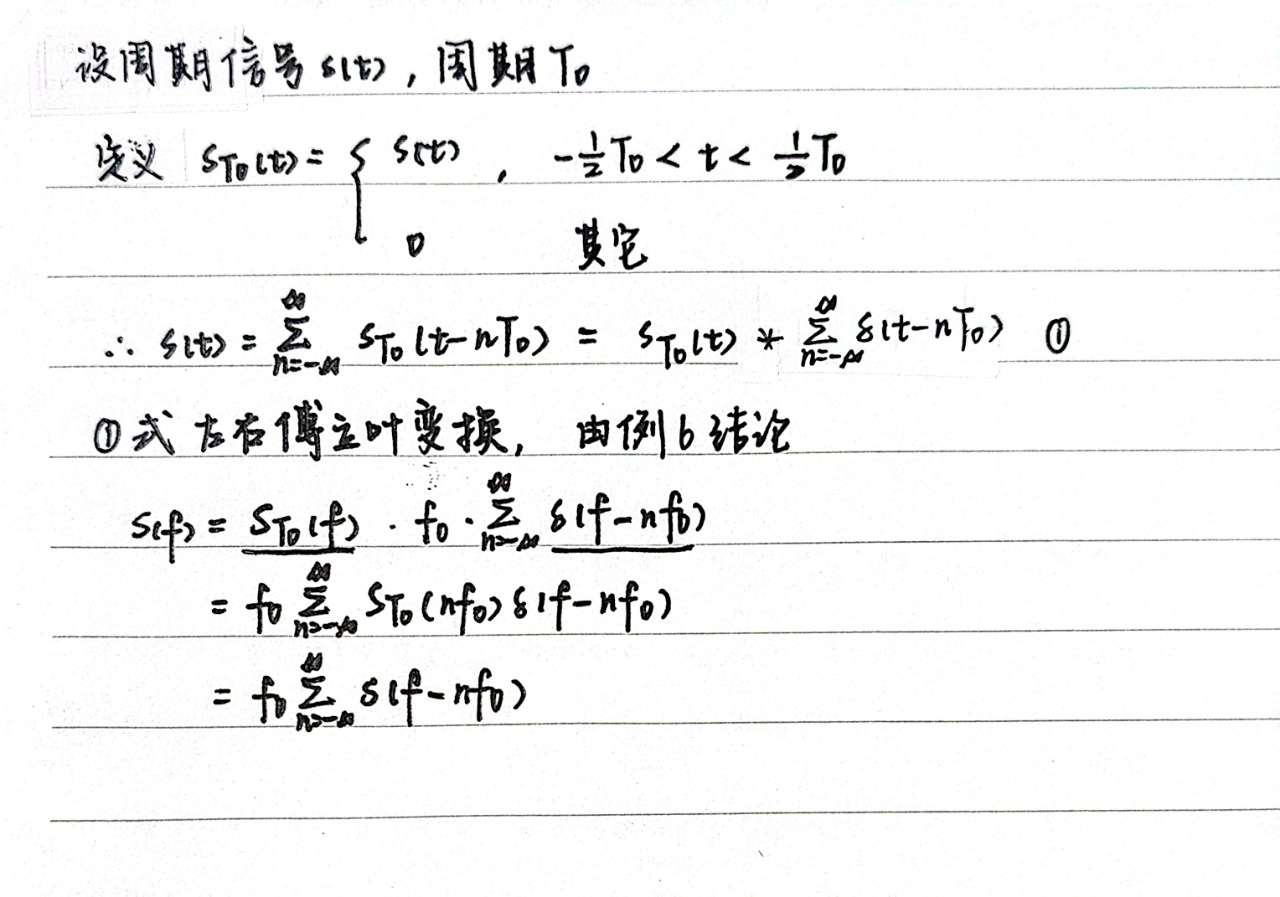 设周期信号 s(t), 周期 T₀
定义 s_T₀(t) = { s(t), -½T₀ < t < ½T₀
0 其它
∴ s(t) = ∑_{n=-∞}^{∞} s_T₀(t-nT₀) = s_T₀(t) * ∑_{n=-∞}^{∞} δ(t-nT₀) ①
①式 左右傅立叶变换, 由例6结论
S(f) = S_T₀(f) · f₀ · ∑_{n=-∞}^{∞} δ(f-nf₀)
= f₀ ∑_{n=-∞}^{∞} S_T₀(nf₀) δ(f-nf₀)
= f₀ ∑_{n=-∞}^{∞} δ(f-nf₀)